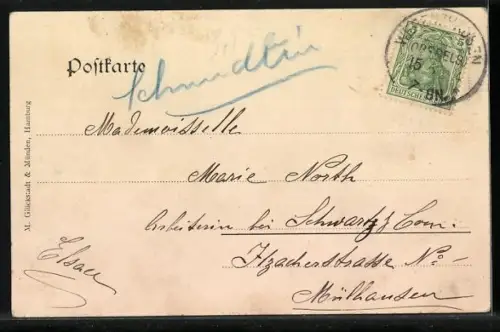 Postkarte
Schmidlin
Mademoisselle
Marie North
Arbeiterin bei Schwartz & Com.
Itzacherstrasse No -
Mülhausen
Elsass
M. Glückstadt & Münden, Hamburg
DEUTSCHES
15
7-8N.